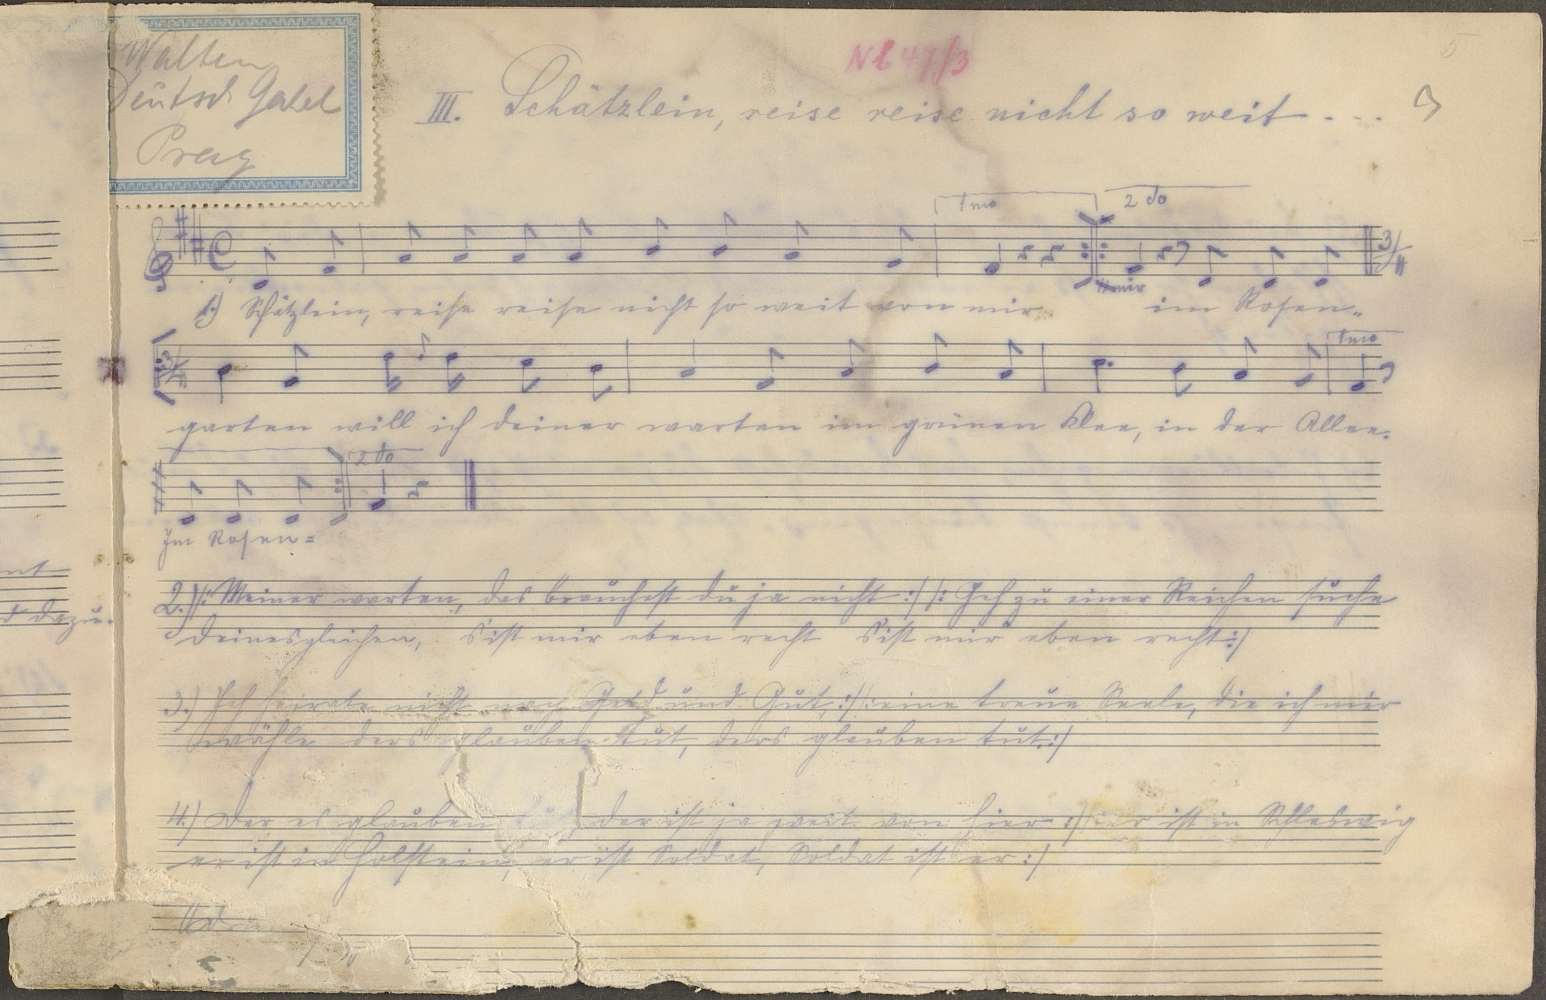 Walten
Deutsch Gabel
Prag
Nl 47/3
5
III. Schätzlein, reise reise nicht so weit . . .
3
1mo
2do
1.) Schätzlein, reise reise nicht so weit von mir
mir im Rosen-
1mo
garten will ich deiner warten im grünen Klee, in der Allee.
2do
Im Rosen=
nt
d dazu.
2.) /: Meiner warten, das brauchst du ja nicht :/ /: Geh zu einer Reichen suche
deinesgleichen, s'ist mir eben recht s'ist mir eben recht :/
3.) Ich heirate nicht nach Geld und Gut, :/ /: eine treue Seele, die ich mir
wähle ders glauben tut, ders glauben tut :/
4.) Der es glauben tut der ist ja weit von hier :/ er ist in Schleswig
er ist in Holstein, er ist Soldat, Soldat ist er :/